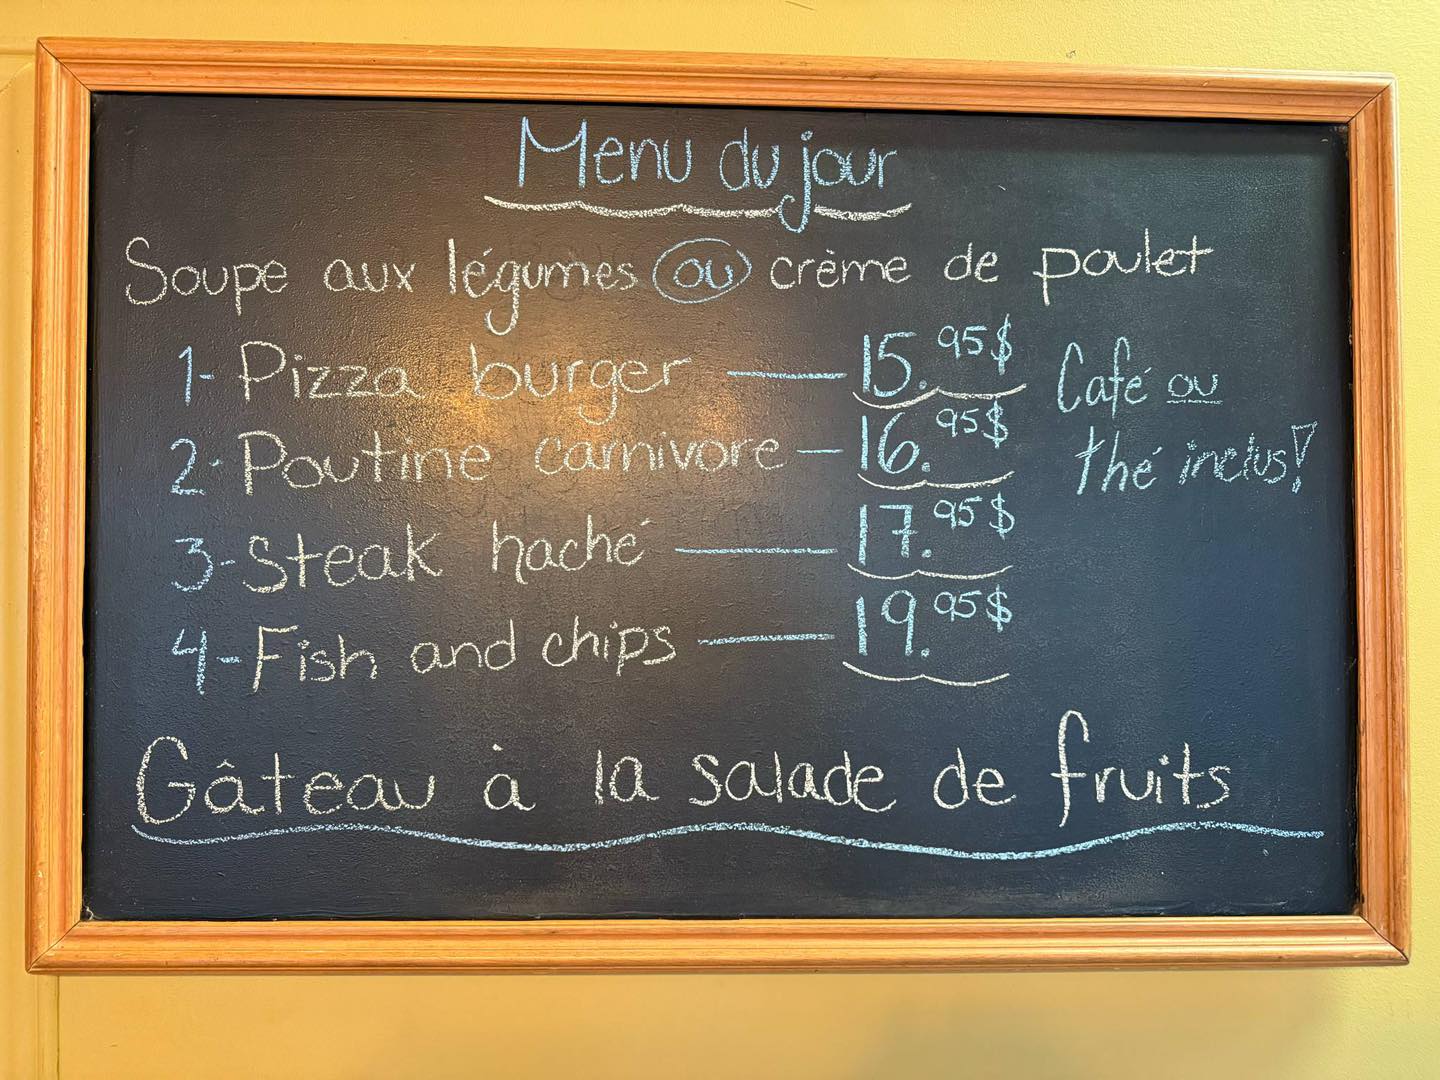 Menu du jour
Soupe aux légumes ou crème de poulet
1- Pizza burger — 15.95$
2- Poutine carnivore — 16.95$
3- Steak haché — 17.95$
4- Fish and chips — 19.95$
Café ou
thé inclus!
Gâteau à la salade de fruits